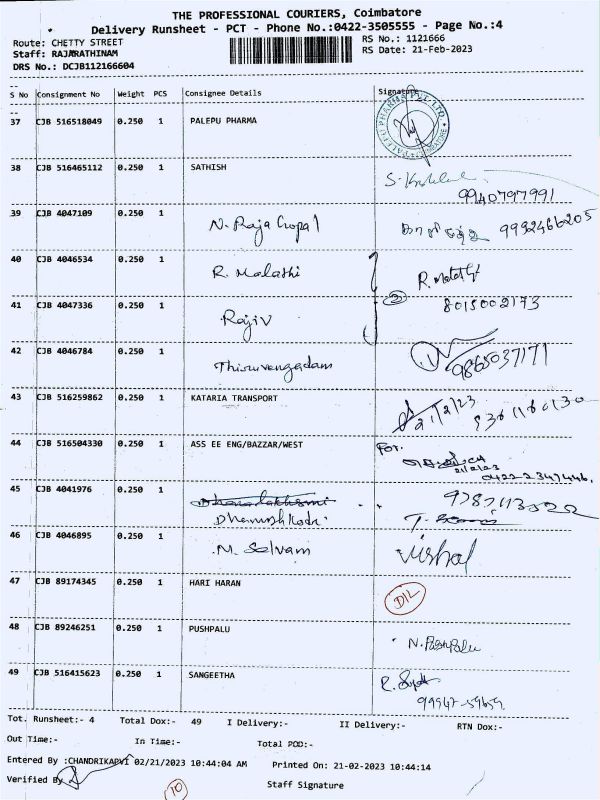 THE PROFESSIONAL COURIERS, Coimbatore
Delivery Runsheet - PCT - Phone No.:0422-3505555 - Page No.:4
Route: CHETTY STREET RS No.: 1121666
Staff: RAJARATHINAM RS Date: 21-Feb-2023
DRS No.: DCJB112166604
S No Consignment No Weight PCS Consignee Details Signature
37 CJB 516518049 0.250 1 PALEPU PHARMA
38 CJB 516465112 0.250 1 SATHISH
9940797991
39 CJB 4047109 0.250 1 N. Raja Gopal 9952466205
40 CJB 4046534 0.250 1 R. Malathi
41 CJB 4047336 0.250 1 Rajiv 8015002173
42 CJB 4046784 0.250 1 Thiruvengadam 9865037171
43 CJB 516259862 0.250 1 KATARIA TRANSPORT 21/2/23
44 CJB 516504330 0.250 1 ASS EE ENG/BAZZAR/WEST For.
21/2/23
0422-2347446.
45 CJB 4041976 0.250 1 Dhanalakshmi
Dhanushkodi
46 CJB 4046895 0.250 1 M. Selvam Vishal
47 CJB 89174345 0.250 1 HARI HARAN D/L
48 CJB 89246251 0.250 1 PUSHPALU N. Pushpalu
49 CJB 516415623 0.250 1 SANGEETHA
Tot. Runsheet:- 4 Total Dox:- 49 I Delivery:- II Delivery:- RTN Dox:-
Out Time:- In Time:- Total POD:-
Entered By :CHANDRIKAPVI 02/21/2023 10:44:04 AM Printed On: 21-02-2023 10:44:14
Verified By
10 Staff Signature